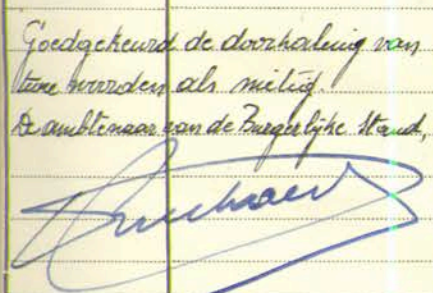 Goedgekeurd de doorhaling van
twee woorden als nietig.
De ambtenaar van de Burgerlijke Stand,